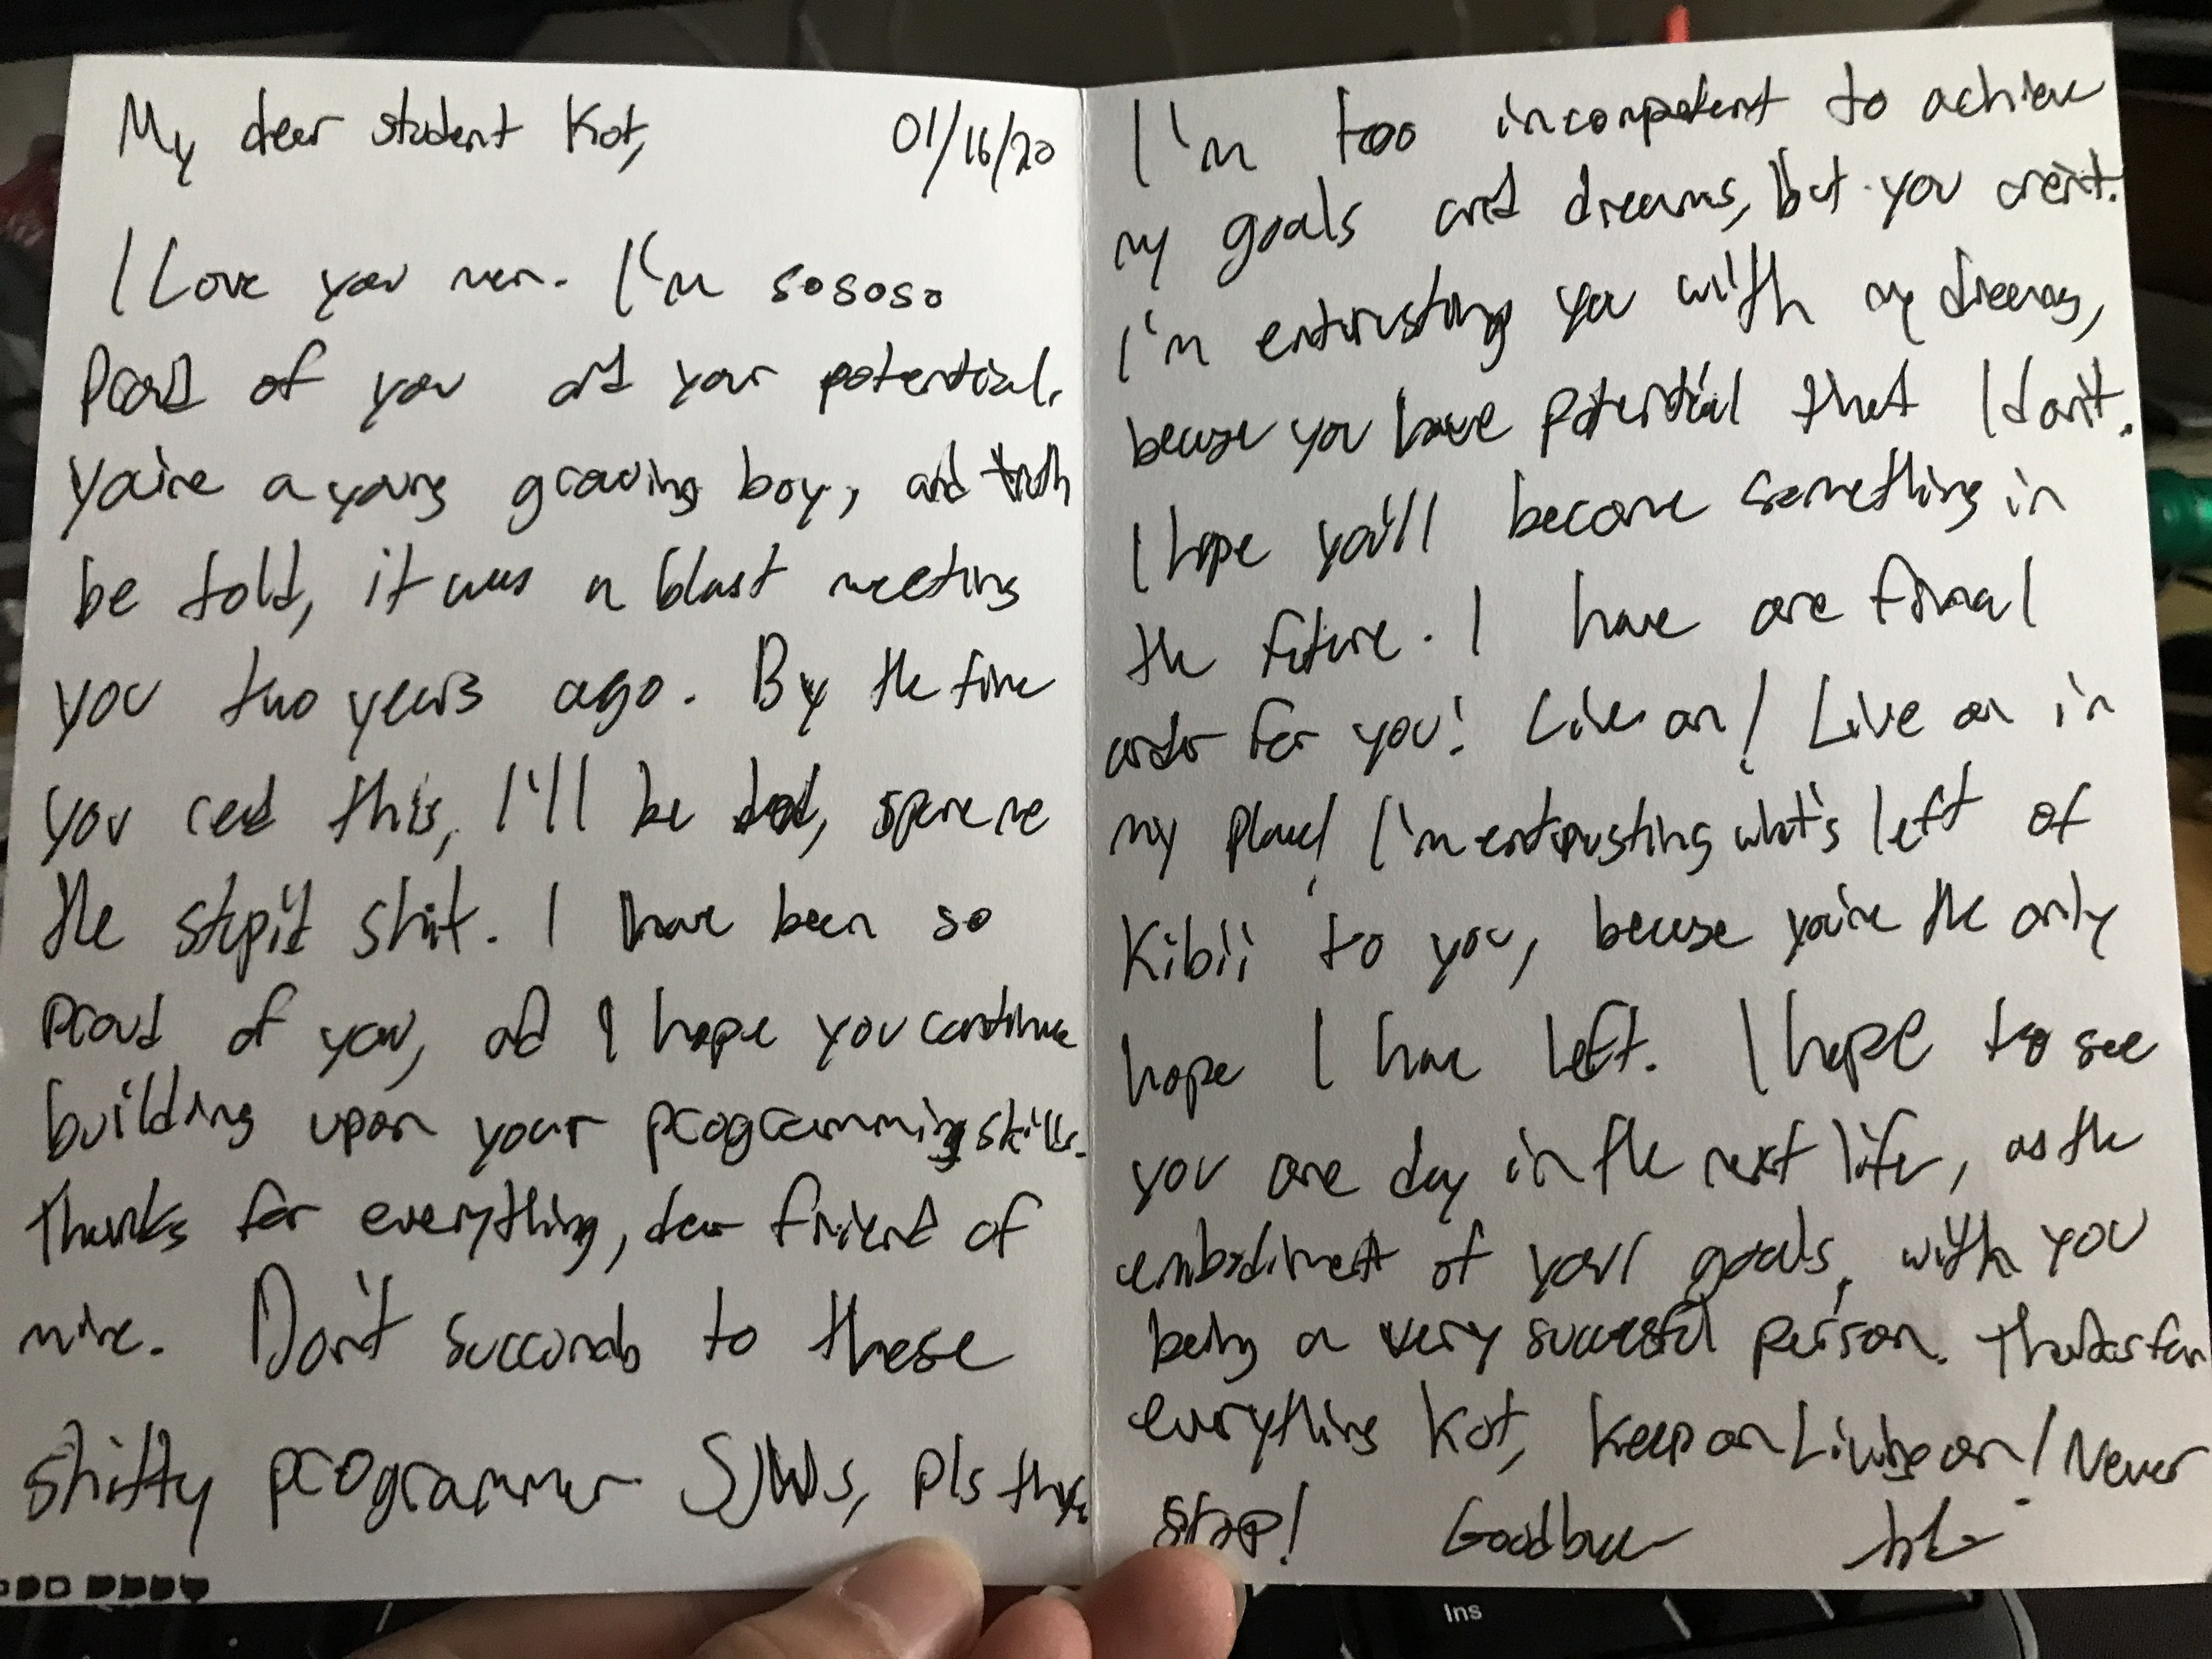 My dear student Kot, 01/16/20
I Love you man. I'm sososo
Proud of you and your potential.
You're a young growing boy, and truth
be told, it was a blast meeting
you two years ago. By the time
you read this, I'll be dead, spare me
the stupid shit. I have been so
proud of you, and I hope you continue
building upon your programming skills.
Thanks for everything, dear friend of
mine. Don't succumb to these
shitty programmer SJWs, pls
I'm too incompetent to achieve
my goals and dreams, but you aren't.
I'm entrusting you with my dreams,
because you have potential that I don't.
I hope you'll become something in
the future. I have one final
order for you! Live on! Live on in
my place! I'm entrusting what's left of
Kibii to you, because you're the only
hope I have left. I hope to see
you one day in the next life, as the
embodiment of your goals, with you
being a very successful person. Thanks for
everything Kot, keep on Living on! Never
stop! Goodbye
Ins